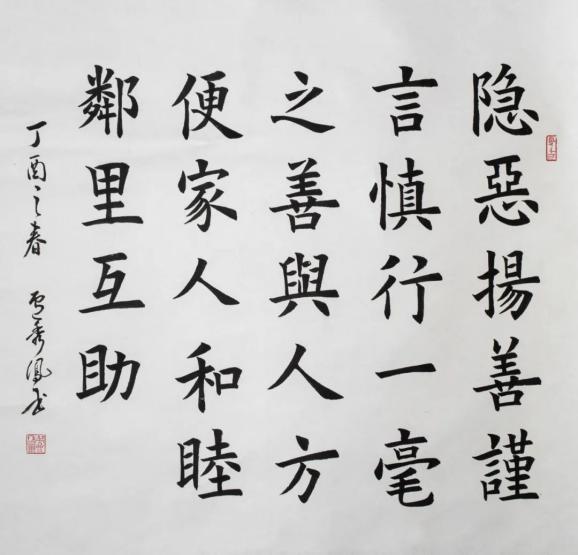 隐惡揚善謹
言慎行一毫
之善與人方
便家人和睦
鄰里互助
丁酉之春 秀鳳书